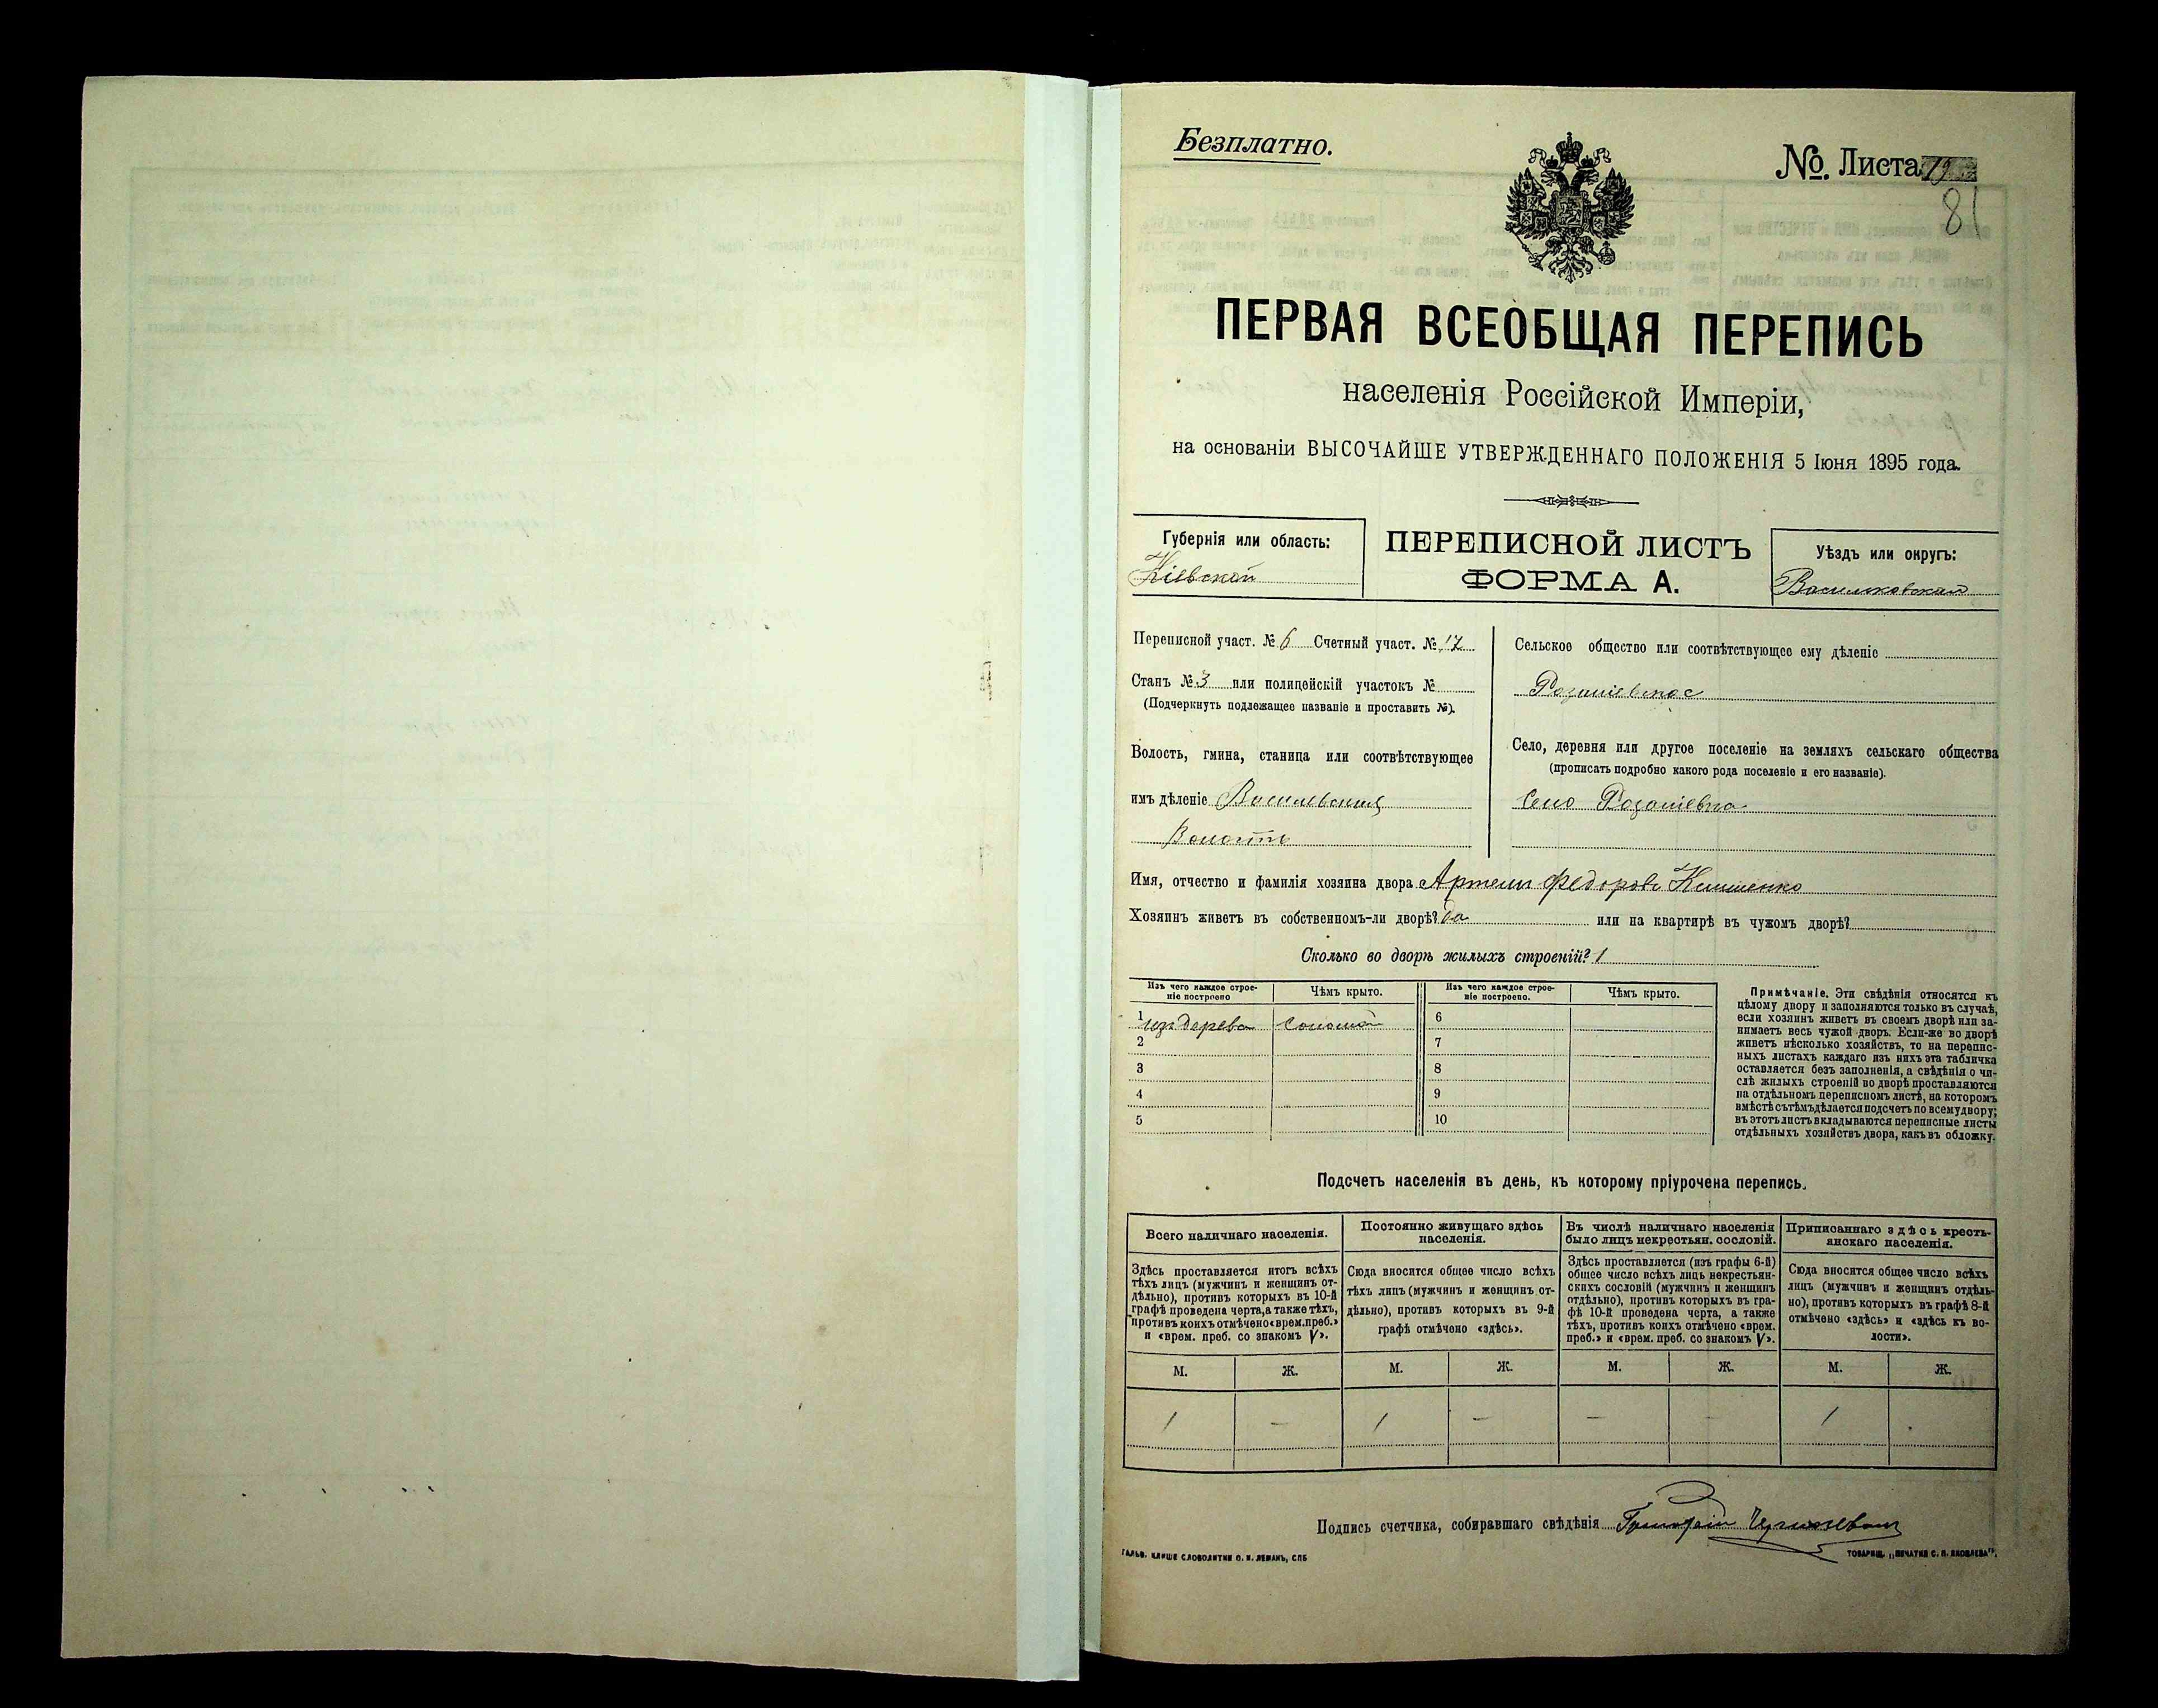 Безплатно.
№. Листа 19
81
ПЕРВАЯ ВСЕОБЩАЯ ПЕРЕПИСЬ
населенія Россійской Имперіи,
на основаніи ВЫСОЧАЙШЕ УТВЕРЖДЕННАГО ПОЛОЖЕНІЯ 5 Іюня 1895 года.
Губернія или область:
Кіевской
ПЕРЕПИСНОЙ ЛИСТЪ
ФОРМА А.
Уѣздъ или округъ:
Васильковскай
Переписной участ. № 6 Счетный участ. № 12
Станъ № 3 или полицейскій участокъ №
(Подчеркнуть подлежащее названіе и проставить №).
Волость, гмина, станица или соотвѣтствующее
имъ дѣленіе
Волость
Сельское общество или соотвѣтствующее ему дѣленіе
Село, деревня или другое поселеніе на земляхъ сельскаго общества
(прописать подробно какого рода поселеніе и его названіе).
Село
Имя, отчество и фамилія хозяина двора Артемъ Федоровъ
Хозяинъ живетъ въ собственномъ-ли дворѣ? да или на квартирѣ въ чужомъ дворѣ?
Сколько во дворѣ жилыхъ строеній? 1
Изъ чего каждое строе-
ніе построено
Чѣмъ крыто.
Изъ чего каждое строе-
ніе построено.
Чѣмъ крыто.
1 изъ дерева соломой 6
2 7
3 8
4 9
5 10
Примѣчаніе. Эти свѣдѣнія относятся къ
цѣлому двору и заполняются только въ случаѣ,
если хозяинъ живетъ въ своемъ дворѣ или за-
нимаетъ весь чужой дворъ. Если-же во дворѣ
живетъ нѣсколько хозяйствъ, то на перепис-
ныхъ листахъ каждаго изъ нихъ эта табличка
оставляется безъ заполненія, а свѣдѣнія о чи-
слѣ жилыхъ строеній во дворѣ проставляются
на отдѣльномъ переписномъ листѣ, на которомъ
вмѣстѣ съ тѣмъ дѣлается подсчетъ по всему двору;
въ этотъ листъ вкладываются переписные листы
отдѣльныхъ хозяйствъ двора, какъ въ обложку.
Подсчетъ населенія въ день, къ которому пріурочена перепись.
Всего наличнаго населенія.
Здѣсь проставляется итогъ всѣхъ
тѣхъ лицъ (мужчинъ и женщинъ от-
дѣльно), противъ которыхъ въ 10-й
графѣ проведена черта, а также тѣхъ,
противъ коихъ отмѣчено «врем. преб.»
и «врем. преб. со знакомъ V».
Постоянно живущаго здѣсь
населенія.
Сюда вносится общее число всѣхъ
тѣхъ лицъ (мужчинъ и женщинъ от-
дѣльно), противъ которыхъ въ 9-й
графѣ отмѣчено «здѣсь».
Въ числѣ наличнаго населенія
было лицъ некрестьян. сословій.
Здѣсь проставляется (изъ графы 6-й)
общее число всѣхъ лицъ некрестьян-
скихъ сословій (мужчинъ и женщинъ
отдѣльно), противъ которыхъ въ гра-
фѣ 10-й проведена черта, а также
тѣхъ, противъ коихъ отмѣчено «врем.
преб.» и «врем. преб. со знакомъ V».
Приписаннаго здѣсь кресть-
янскаго населенія.
Сюда вносится общее число всѣхъ
лицъ (мужчинъ и женщинъ отдѣль-
но), противъ которыхъ въ графѣ 8-й
отмѣчено «здѣсь» и «здѣсь къ во-
лости».
М. Ж. М. Ж. М. Ж. М. Ж.
1 – 1 – – – 1
Подпись счетчика, собиравшаго свѣдѣнія
ГАЛЬВ. КЛИШЕ СЛОВОЛИТНИ О. И. ЛЕМАНЪ, СПБ
ТОВАРИЩ. „ПЕЧАТНЯ С. П. ЯКОВЛЕВА".